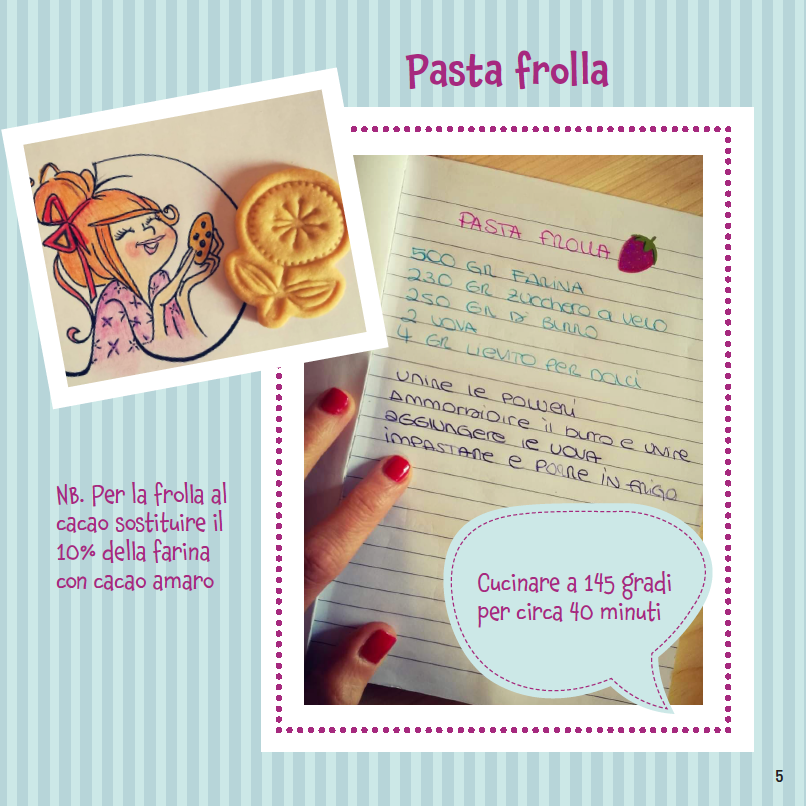 Pasta frolla
PASTA FROLLA
500 GR FARINA
230 GR ZUCCHERO A VELO
250 GR DI BURRO
2 UOVA
4 GR LIEVITO PER DOLCI
UNIRE LE POLVERI
AMMORBIDIRE IL BURRO E UNIRE
AGGIUNGERE LE UOVA
IMPASTARE E PORRE IN FRIGO
NB. Per la frolla al
cacao sostituire il
10% della farina
con cacao amaro
Cucinare a 145 gradi
per circa 40 minuti
5